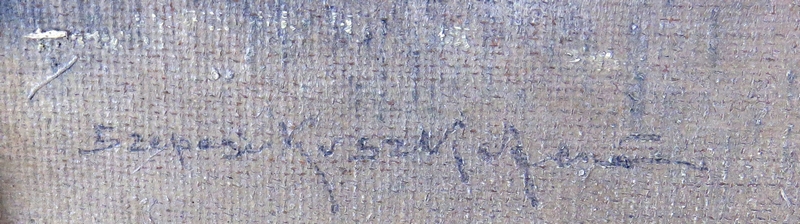 Szepesi Kuszka Jenő